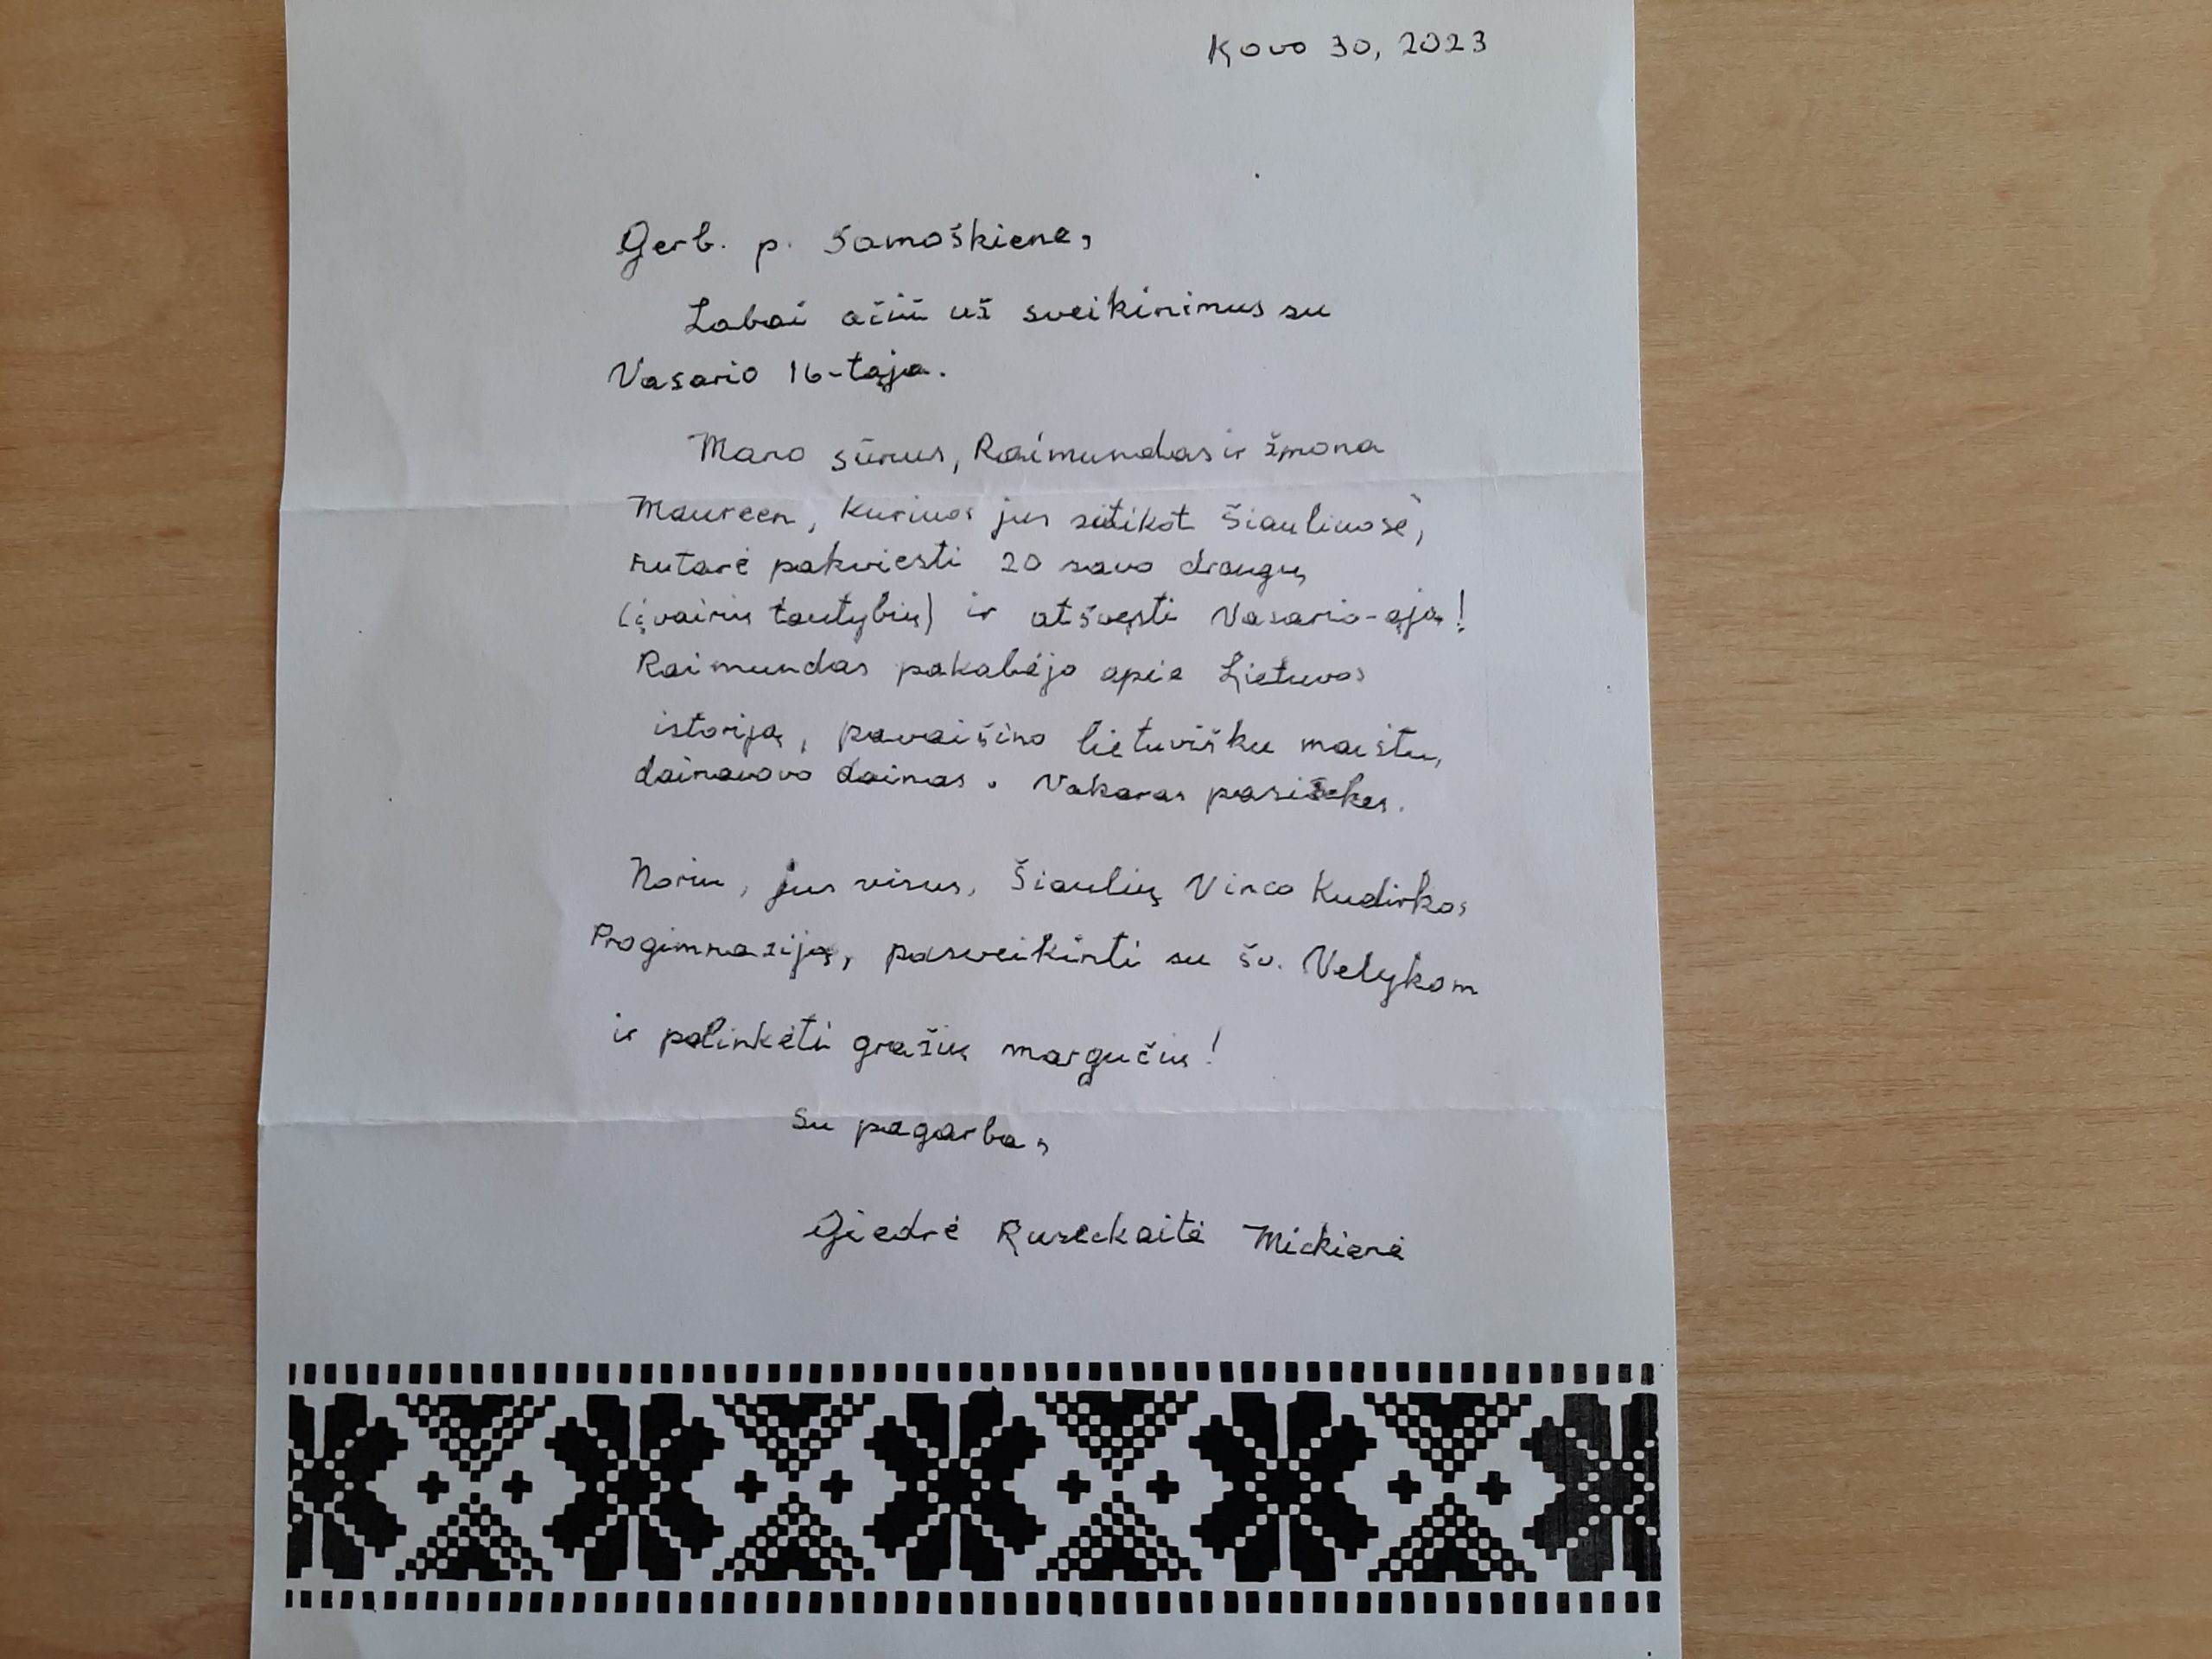 Kovo 30, 2023
Gerb. p. Samoškiene,
Labai ačiū už sveikinimus su
Vasario 16-tąja.
Mano sūnus, Raimundas ir žmona
Maureen, kuriuos jus sutikot Šiauliuose,
nutarė pakviesti 20 savo draugų
(įvairių tautybių) ir atšvęsti Vasario-ąją!
Raimundas pakabėjo apie Lietuvos
istoriją, pavaišino lietuvišku maistu,
dainavo dainas. Vakaras pasisekes.
Noriu, jus visus, Šiaulių Vinco Kudirkos
Progimnaziją, pasveikinti su šv. Velykom
ir palinkėti gražių margučių!
Su pagarba,
Giedrė Ruseckaitė Mickienė